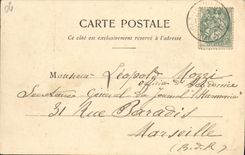 CARTE POSTALE
Ce côté est exclusivement réservé à l'adresse
Monsieur Léopold Mozzi
officier de
Secrétaire Général du Journal
31 Rue Paradis
Marseille
(B.d.R.)